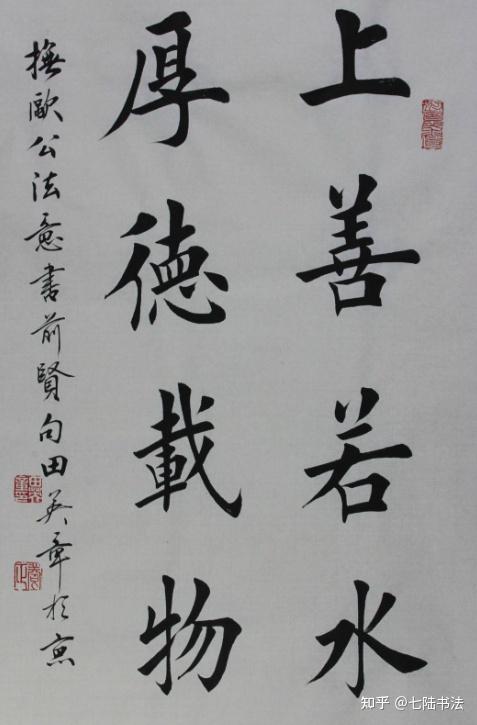 上善若水
厚德載物
撫歐公法意書前賢句田英章於京
知乎 @七陆书法